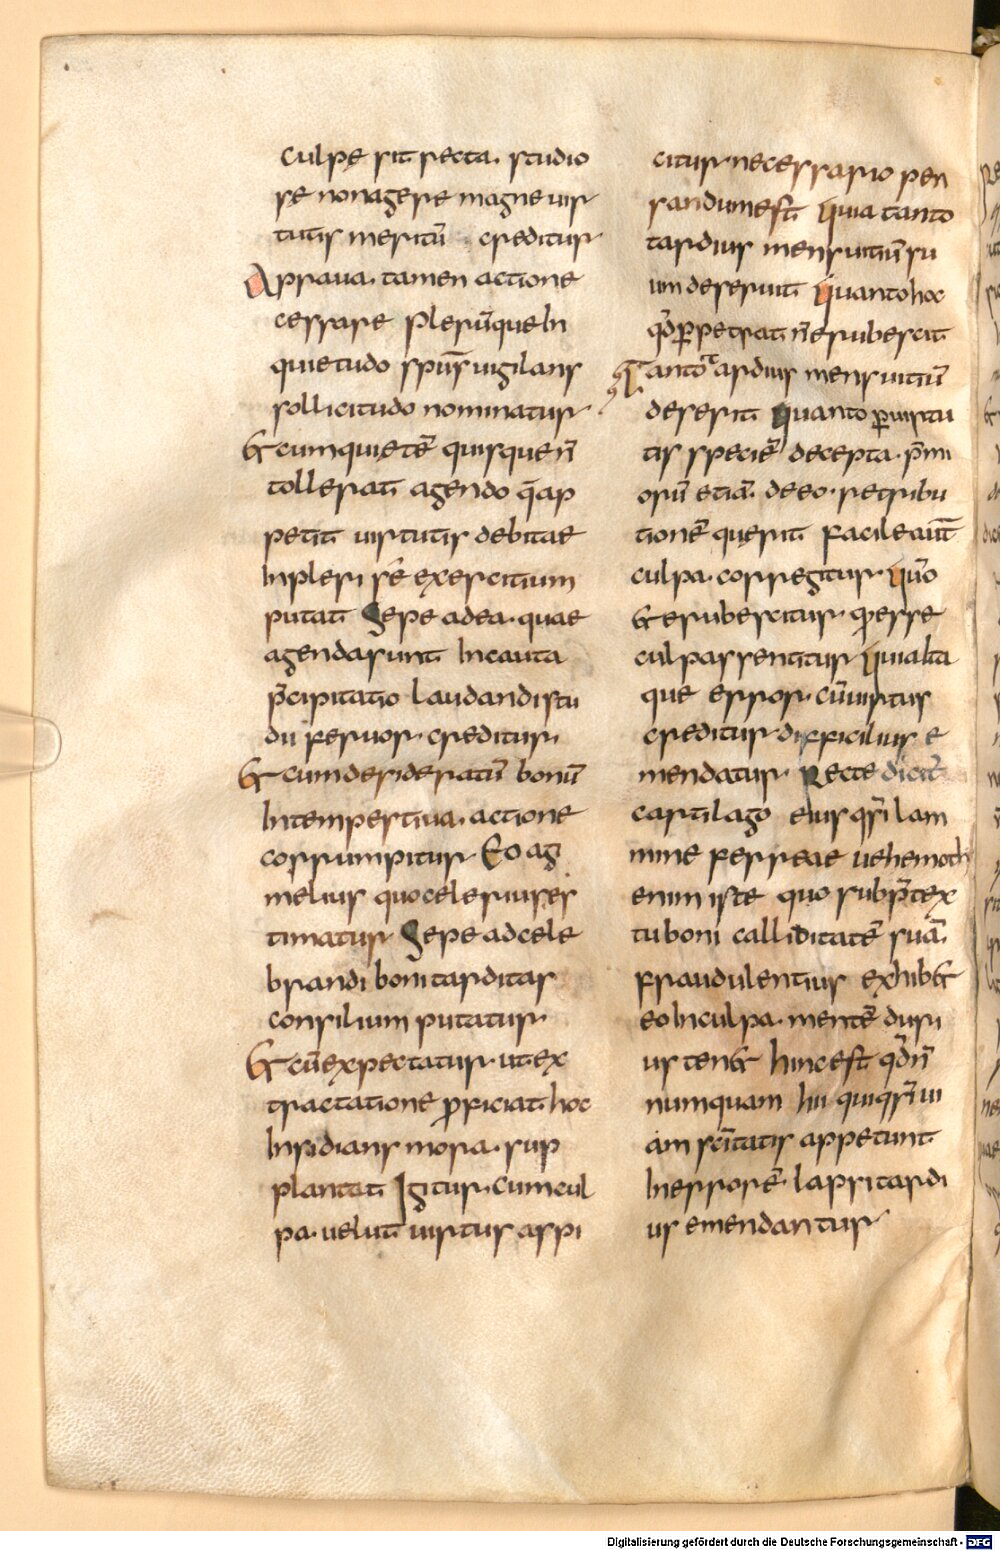 culpę sit secta. studio
se non agere magne uir
tutis meritū creditur
A praua. tamen actione
cessare plerūque In
quietudo sps̄ uigilans
sollicitudo nominatur
& cum quietē quisque n̄
tollerat agendo q̄ ap
petit uirtutis debitae
Inpleri sē exercitium
putat Sepe ad ea. quae
agenda sunt Incauta
p̄cipitatio laudandi stu
dii feruor. creditur.
& cum desideratū bonū
Intempestiua. actione
corrumpitur Eo ag
melius quo celerius es
timatur Sepe ad cele
brandi boni tarditas
consilium putatur
& cū expectatur. ut ex
tractatione proficiat. hoc
Insidians mora. sup
plantat Igitur. cum cul
pa. uelut uirtus aspi
citur. necessario pen
sandum est quia tanto
tardius mens uitiū su
um deserit quanto hoc
qđ perpetrat n̄ erubescit
Tanto tardius mens uitiū
deserit quanto per uirtu
tis speciē decepta. p̄mi
orū etiā. de eo. retribu
tionē querit facile aut̄
culpa. corregitur. quō
& erubescitur. quę esse
culpa sentitur quia Ita
que error. cū uirtus
creditur difficilius e
mendatur. Recte dicit̄
cartilago eius qsi lam
mine ferreae uehemoth
enim iste quo sub p̄tex
tu boni calliditatē suā.
fraudulentius exhib&
eo In culpa. mentē duri
us ten& hinc est qđ n̄
numquam hii qui qsi ui
am sc̄itatis appetunt
In errorē lapsi tardi
us emendantur
Digitalisierung gefördert durch die Deutsche Forschungsgemeinschaft - DFG